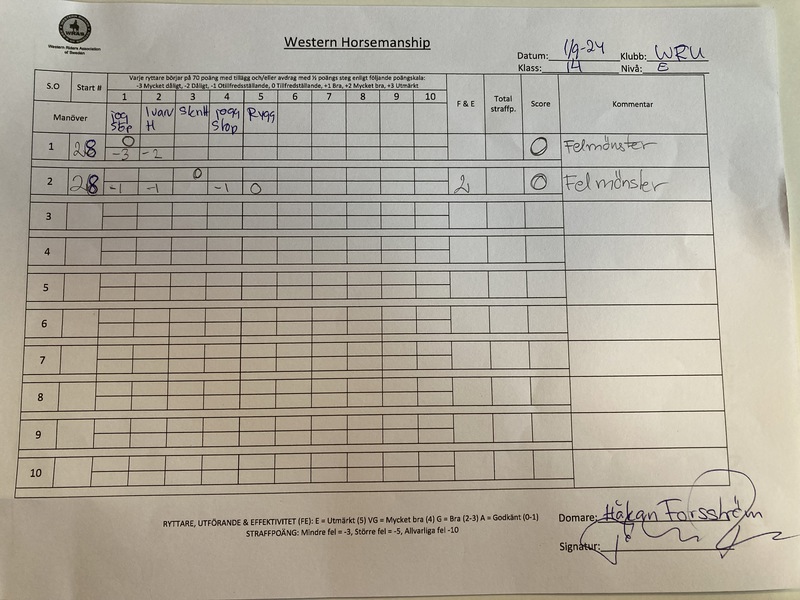 WRAS
Western Riders Association
of Sweden
Western Horsemanship
Datum: 1/9-24 Klubb: WRU
Klass: 14 Nivå: E
S.O Start # Varje ryttare börjar på 70 poäng med tillägg och/eller avdrag med ½ poängs steg enligt följande poängskala:
-3 Mycket dåligt, -2 Dåligt, -1 Otillfredsställande, 0 Tillfredställande, +1 Bra, +2 Mycket bra, +3 Utmärkt
1 2 3 4 5 6 7 8 9 10 F & E Total straffp. Score Kommentar
Manöver jog stop 1varv H jogg stop Rygg
1 28 0 0 Felmönster
-3 -2
2 28 0 0 Felmönster
-1 -1 -1 0 2
3
4
5
6
7
8
9
10
RYTTARE, UTFÖRANDE & EFFEKTIVITET (FE): E = Utmärkt (5) VG = Mycket bra (4) G = Bra (2-3) A = Godkänt (0-1)
STRAFFPOÄNG: Mindre fel = -3, Större fel = -5, Allvarliga fel -10
Domare: Håkan Forsström
Signatur: